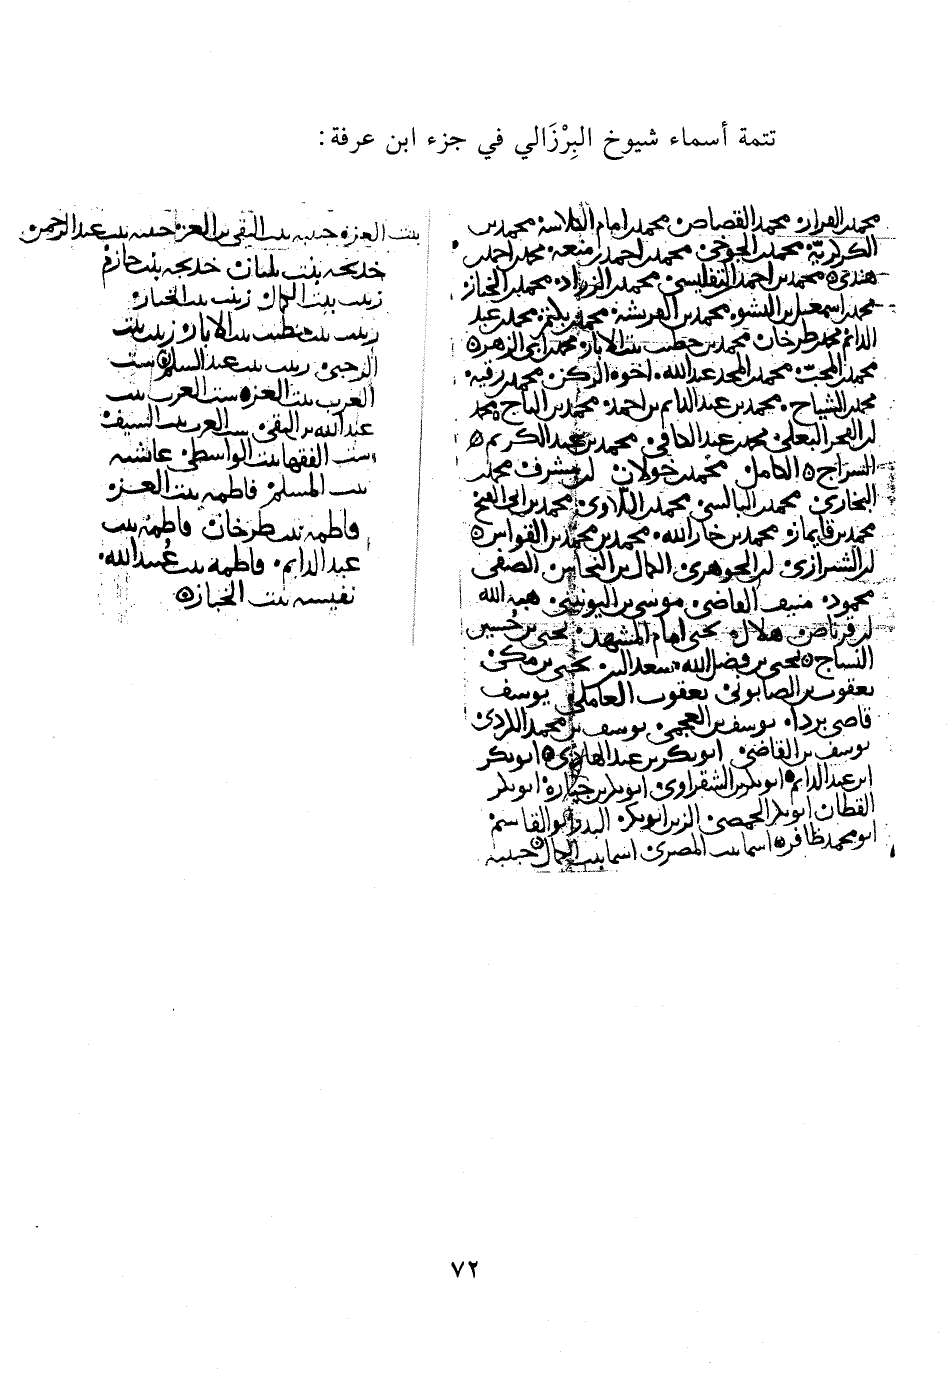 تتمة أسماء شيوخ البِرْزَالي في جزء ابن عرفة :
محمد القزاز محمد القصاص محمد امام الكلاسة محمد بن
الكركرية محمد بن الجوخي محمد بن احمد بن منعة محمد بن احمد بن
هندي محمد بن احمد التفليسي محمد بن الزراد محمد بن الخباز
محمد بن اسمعيل بن النشو محمد بن القريشة محمد بن بلتمر محمد بن عبد
الدائم محمد طرخان محمد بن خطيب بيت الابار محمد بن ابي الزهر
محمد بن المحب محمد بن المجد عبد الله اخوه الزكي محمد رقية
محمد بن الشياح محمد بن عبد الدايم بن احمد محمد بن التاج محمد
ابن الفخر البعلي محمد بن عبد الكافي محمد بن عبد الكريم
السراج الكامل محمد خولان ابن مشرف محمد
البخاري محمد البالسي محمد البلاوي محمد بن ابي الفتح
محمد بن قايماز محمد بن خار الله محمد بن محمد بن القواس
ابن الشيرازي ابن الجوهري الكمال بن النحاس الصفي
محمود منيف القاضي موسى بن اليونيني هبة الله
ابن قرناص هلال يحيى امام المشهد يحيى بن حسين
النساج يحيى بن فضل الله سعد الدين يحيى بن مكي
يعقوب بن الصابوني يعقوب العاملي يوسف
قاضي بردا يوسف بن العجمي يوسف بن محمد الكردي
يوسف بن القاضي ابو بكر بن عبد الهادي ابو بكر
ابن عبد الدايم ابو بكر بن الشقراوي ابو بكر بن جبارة ابو بكر
القطان ابو بكر الحمصي الزين ابو بكر البدر ابو القاسم
ابو محمد ظافر اسما بنت المصري اسما بنت الكمال حبيبة
بنت العز حبيبة بنت التقي بن العز حبيبة بنت عبد الرحمن
خديجة بنت بلبان خديجة بنت حازم
زينب بنت الكمال زينب بنت الخباز
زينب بنت خطيب بيت الابار زينب بنت
الرحبي زينب بنت عبد السلام ست
العرب بنت العز ست العرب بنت
عبد الله بن التقي ست العرب بنت السيف
ست الفقها بنت الواسطي عائشة
بنت المسلم فاطمة بنت العز
فاطمة بنت طرخان فاطمة بنت
عبد الدايم فاطمة بنت عبيد الله
نفيسة بنت الخباز
٧٢